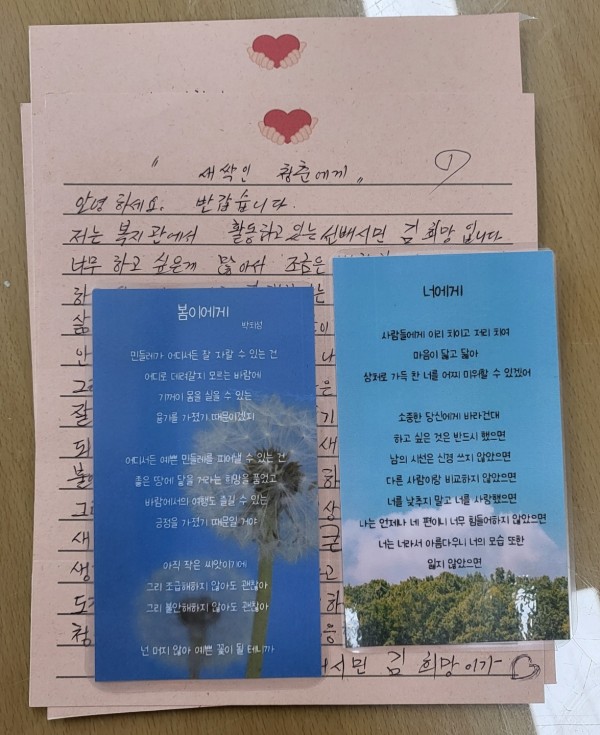 "새싹인 청춘에게"
①
안녕 하세요. 반갑습니다.
저는 복지관에서 활동하고 있는 선배시민 김희망 입니다
너무 하고 싶은게 많아서 조금은
하
삶
안 나
그 은
잘 기
되 새
불 하
그 상
새 큰
생 고
도 하
청 응
배시민 김 희망 이가
봄이에게
박치성
민들레가 어디서든 잘 자랄 수 있는 건
어디로 데려갈지 모르는 바람에
기꺼이 몸을 실을 수 있는
용기를 가졌기 때문이겠지
어디서든 예쁜 민들레를 피어낼 수 있는 건
좋은 땅에 닿을 거라는 희망을 품었고
바람에서의 여행도 즐길 수 있는
긍정을 가졌기 때문일 거야
아직 작은 씨앗이기에
그리 조급해하지 않아도 괜찮아
그리 불안해하지 않아도 괜찮아
넌 머지 않아 예쁜 꽃이 될 테니까
너에게
사람들에게 이리 치이고 저리 치여
마음이 닳고 닳아
상처로 가득 찬 너를 어찌 미워할 수 있겠어
소중한 당신에게 바라건대
하고 싶은 것은 반드시 했으면
남의 시선은 신경 쓰지 않았으면
다른 사람이랑 비교하지 않았으면
너를 낮추지 말고 너를 사랑했으면
나는 언제나 네 편이니 너무 힘들어하지 않았으면
너는 너라서 아름다우니 너의 모습 또한
잃지 않았으면